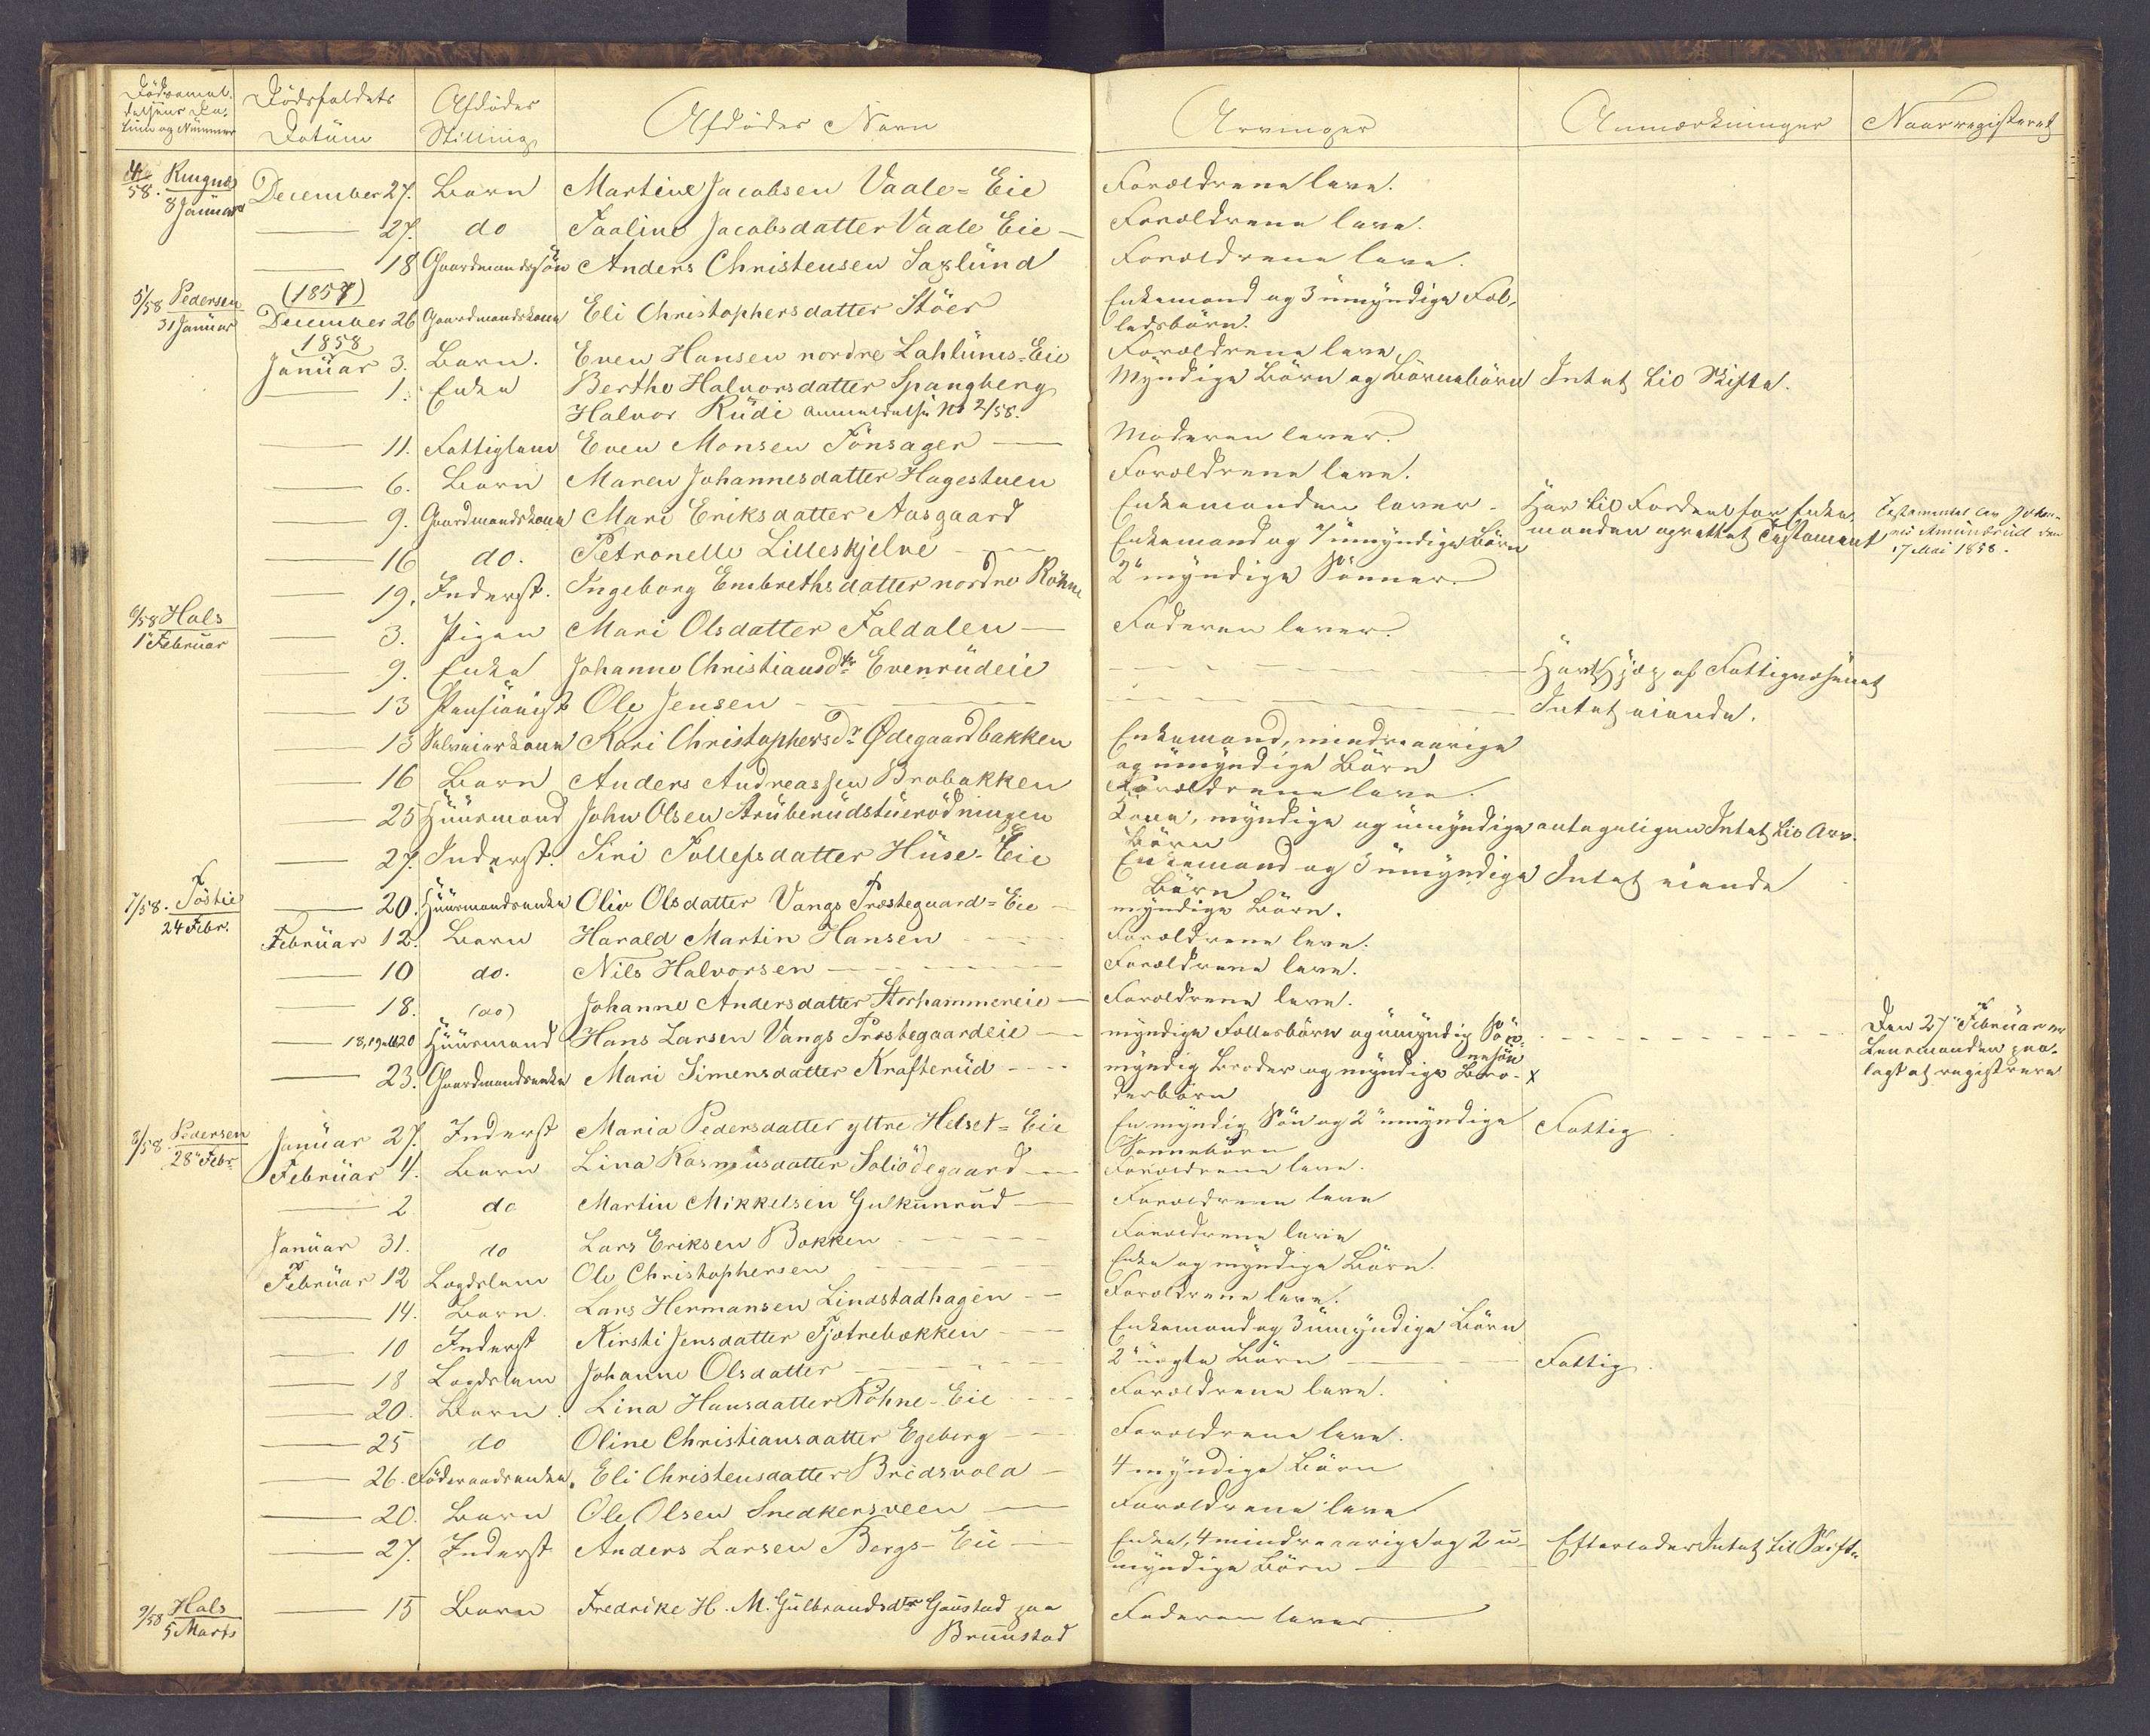 Dödsanmel-
delsens Da-
tum og Nummer
Dödsfaldets Datum
Afdödes Stilling
Afdödes Navn
Arvinger
Anmærkninger
Naar registeret
4/58. Ringnes 8 Januar December 27. Barn Martine Jacobsen Vaale=Eie Forældrene leve.
— 27. do Paaline Jacobsdatter Vaale Eie — Forældrene leve.
— 18 Gaardmandssön Anders Christensen Saxlund Forældrene leve.
5/58 Pedersen 31 Januar (1857) December 26 Gaardmandskone Eli Christophersdatter Stöer Enkemand og 3 umyndige Fæl-
ledsbörn.
1858 Januar 3. Barn. Even Hansen nordre Lahlums=Eie Forældrene leve
— 1. Enke Berthe Halvorsdatter Spangberg Myndige Börn og Börnebörn Intet til Skifte.
Halvor Rudi Anmeldelse No 2/58.
— 11. Fattiglem Even Monsen Fönsager — Moderen lever.
— 6. Barn Maren Johannesdatter Hagestuen Forældrene leve.
— 9. Gaardmandskone Mari Eriksdatter Aasgaard Enkemanden lever - Har til Fordeel for Enke-
manden oprettet Testament
Testamentet
17 Mai 1858.
— 16 do. Petronelle Lilleskjelve — Enkemand og 7 umyndige Börn
— 19. Inderst. Ingeborg Embrethsdatter nordre Köhne 2 myndige Sönner.
6/58 Hals 1 Februar — 3. Pigen Mari Olsdatter Faldalen — Faderen lever.
— 9. Enke Johanne Christiansdtr Evenrudeie — Havt Hjælp af Fattigvæsenet
— 13 Pensionist Ole Jensen — Intet eiende.
— 13 Selveierkone Kari Christophersdr Ødegaardbakken Enkemand, mindreaarige
og umyndige Börn
— 16 Barn Anders Andreassen Brobakken Forældrene leve.
— 25 Huusmand John Olsen Aruberudstuerödningen Kone, myndige og umyndige Börn antageligen Intet til Arv.
— 27. Inderst. Siri Tollefsdatter Huse-Eie Enkemand og 3 umyndige Börn Intet eiende
7/58. Töstie 24 Febr. — 20. Huusmandsenke Olia Olsdatter Vangs Præstegaard=Eie — myndige Börn.
Februar 12. Barn Harald Martin Hansen — Forældrene leve.
— 10 do. Nils Halvorsen — Forældrene leve.
— 18. (do) Johanne Andersdatter Storhammereie — Forældrene leve.
— 18, 19 all 20 Huusmand Hans Larsen Vangs Præstegaardeie — myndige Fællesbörn og umyndig Sön-
nesön
Den 27 Februar er
Lensmanden paa-
lagt at registrere
— 23. Gaardmandsenke Mari Simensdatter Krafterud — myndig Broder og myndige Bro- x
derbörn
8/58. Pedersen 28 Febr. Januar 27. Inderst Maria Pedersdatter yttre Helset=Eie En myndig Sön og 2 umyndige Fattig
Sönnebörn
Februar 4. Barn Lina Rasmusdatter Soliödegaard — Forældrene leve.
— 2 do Martin Mikkelsen Gulkunrud — Forældrene leve
Januar 31. do Lars Eriksen Bakken — Forældrene leve
Februar 12 Lægdslem Ole Christophersen — Enke og myndige Börn.
— 14. Barn. Lars Hermansen Lindstadhagen — Forældrene leve.
— 10 Inderst Kirsti Jensdatter Tjotrebækken — Enkemand og 3 umyndige Börn
— 18 Lægdslem Johanne Olsdatter — 2 uægte Börn — Fattig.
— 20. Barn. Lina Hansdatter Köhne-Eie — Forældrene leve.
— 25 do Oline Christiansdatter Egeberg — Forældrene leve.
— 26. Föderaadsenke. Eli Christensdatter Bredsvold — 4 myndige Börn
— 20. Barn Ole Olsen Snedkersveen — Forældrene leve
— 27. Inderst Anders Larsen Bergs-Eie — Enke, 4 mindreaarige og 2 u-
myndige Börn — Efterlader Intet til Skifte
9/58 Hals 5 Marts — 15 Barn Fredrike H. M. Gulbrandsdtr Gaustad paa Faderen lever
Brunstad